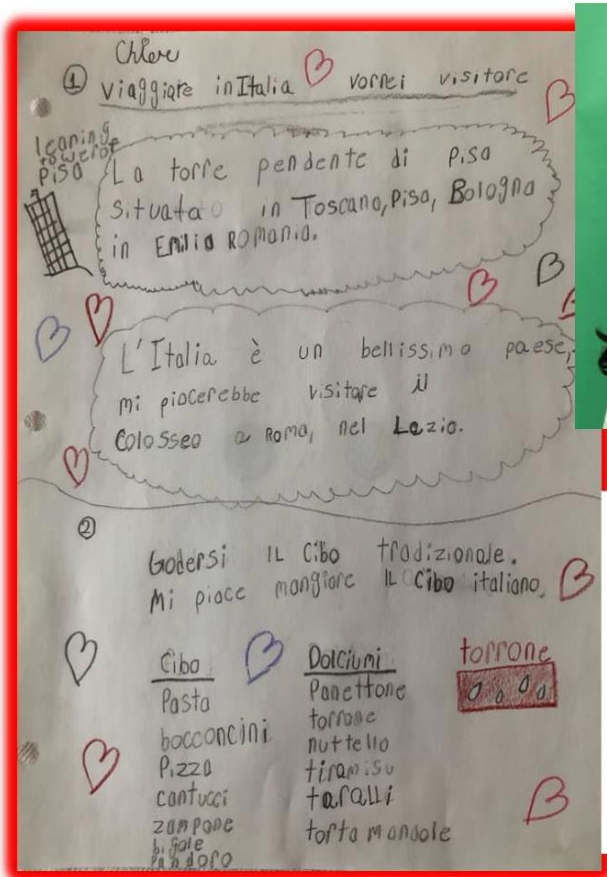 Chloe
① viaggiare in Italia vorrei visitare
leaning
tower of
Pisa
La torre pendente di Pisa
situata in Toscana, Pisa, Bologna
in Emilia Romania.
L'Italia è un bellissimo paese,
mi piacerebbe visitare il
Colosseo a Roma, nel Lazio.
②
Godersi IL Cibo tradizionale.
Mi piace mangiare IL Cibo italiano.
Cibo
Pasta
bocconcini
Pizza
cantucci
zampone
bigole
pandoro
Dolciumi
Panettone
torrone
nuttello
tiramisu
taralli
torta mandole
torrone